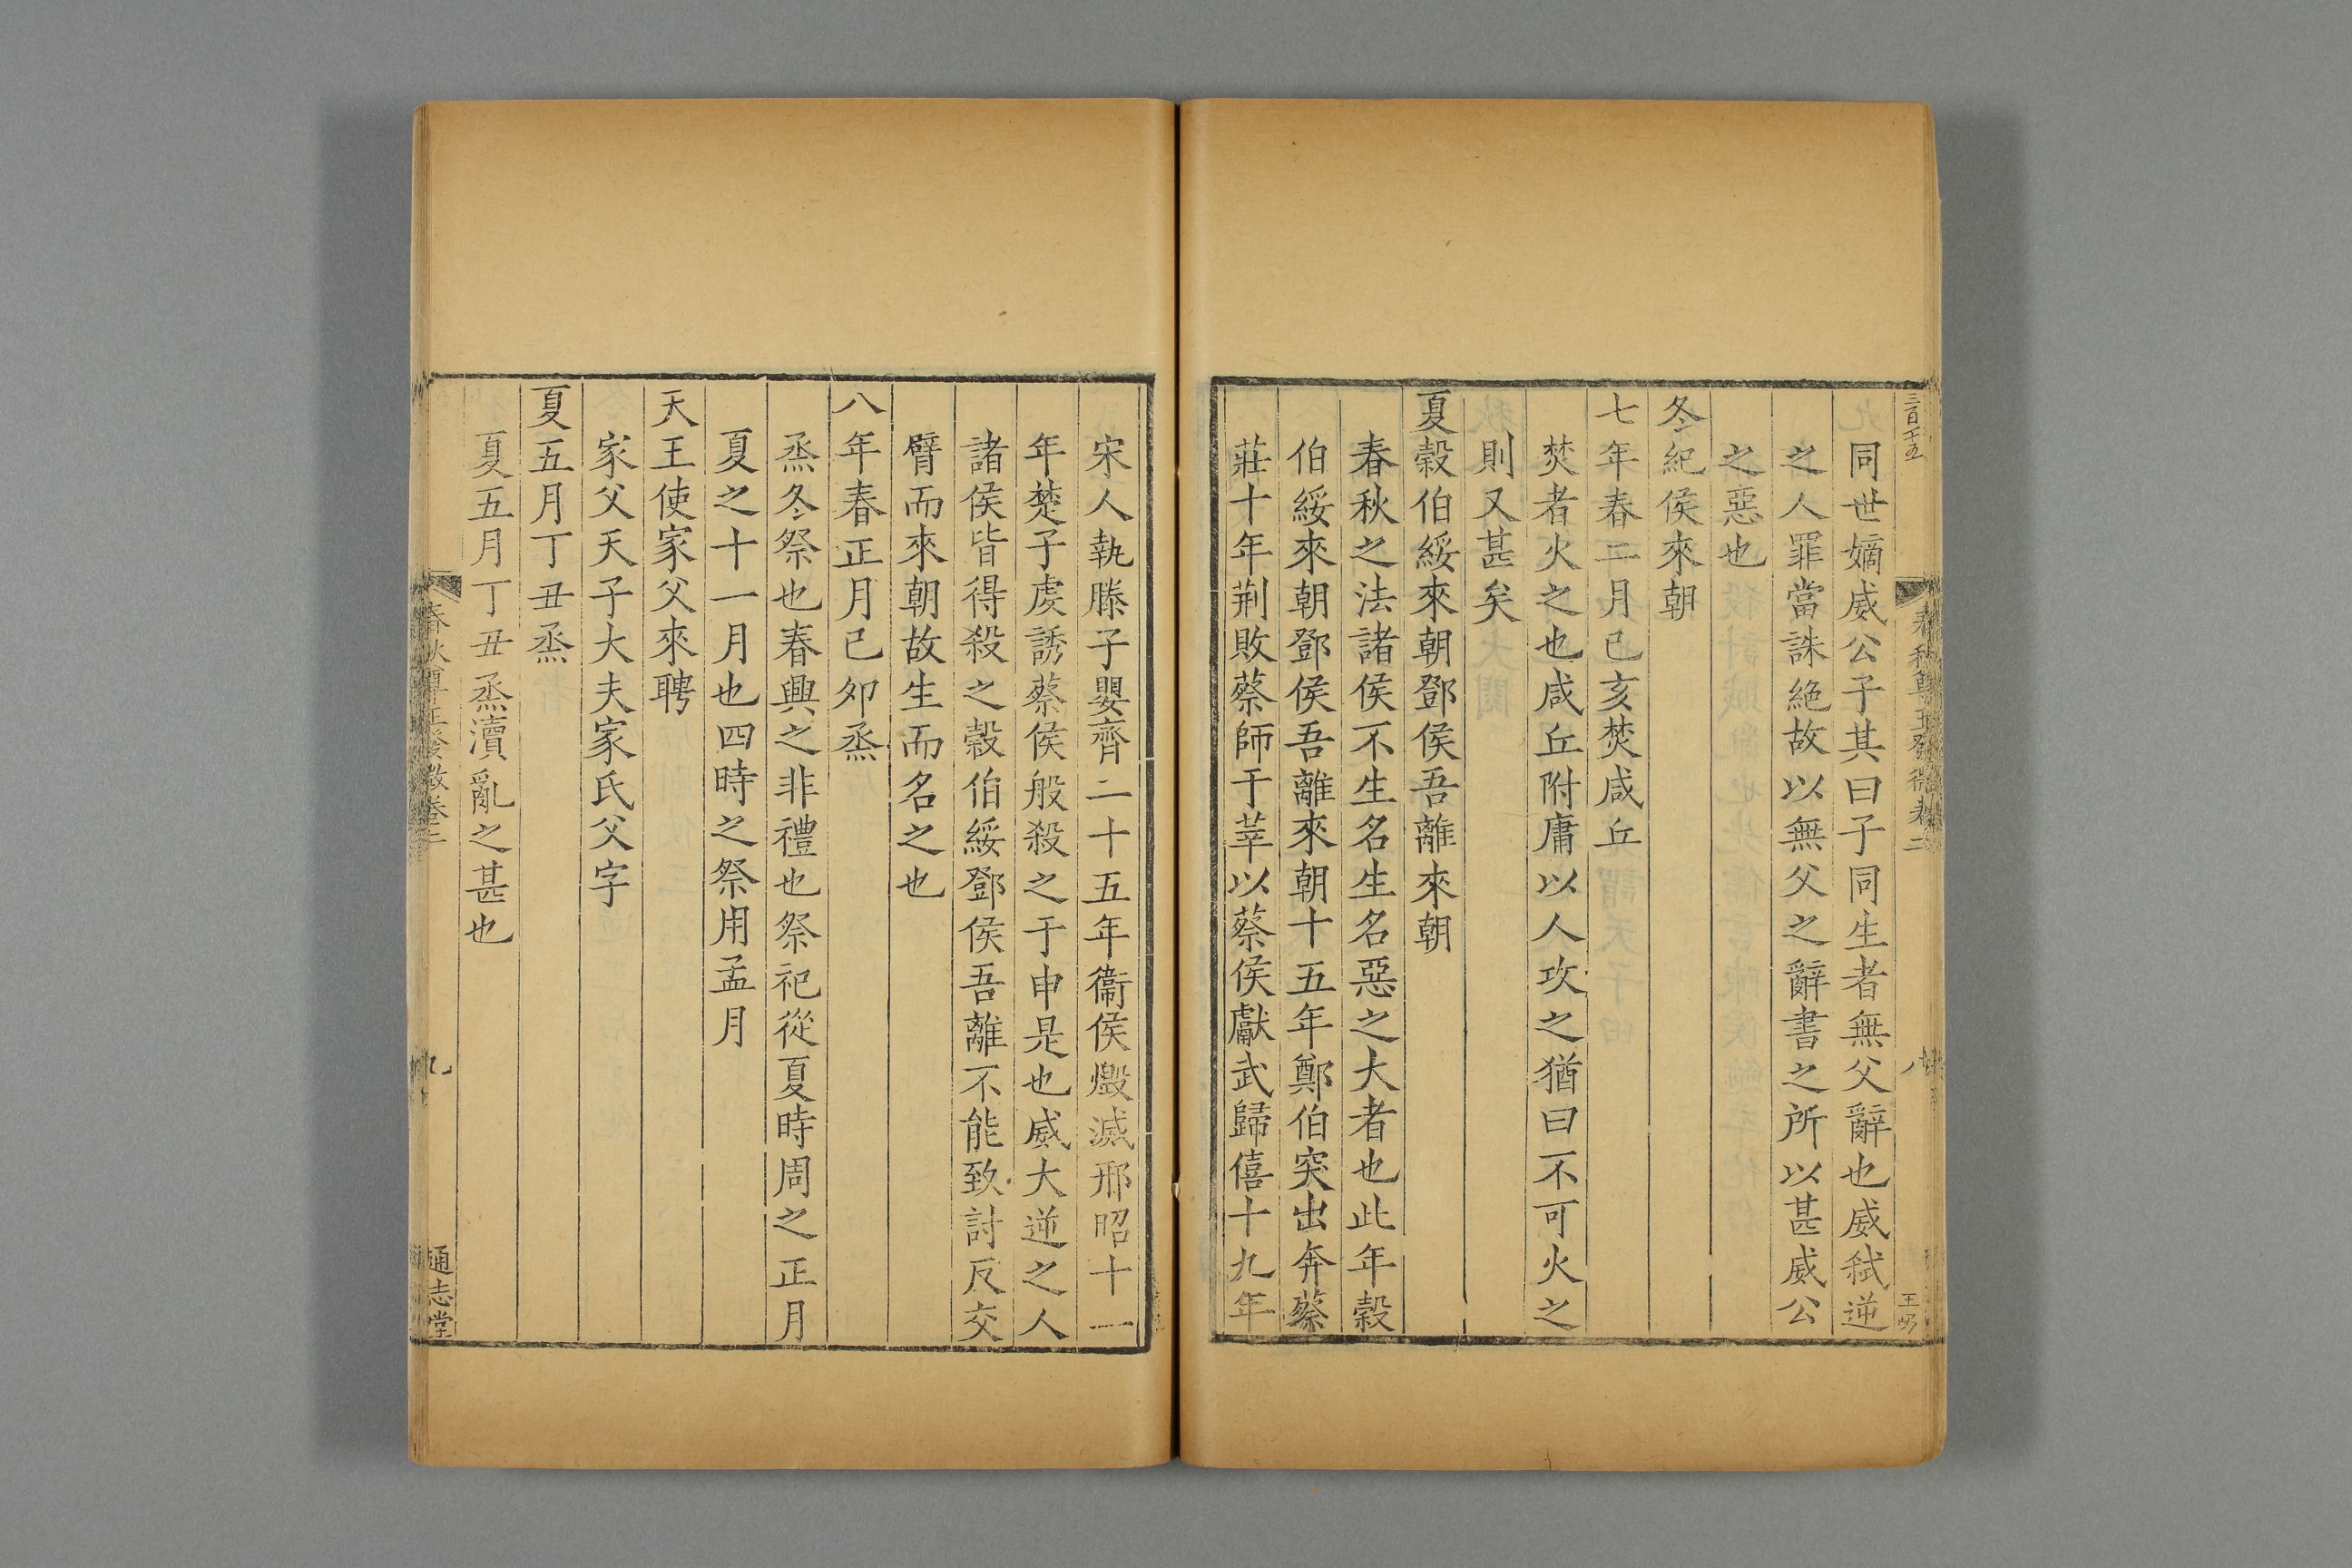 三百十五
同世嫡威公子其曰子同生者無父辭也威弑逆
之人罪當誅絕故以無父之辭書之所以甚威公
之惡也
冬紀侯來朝
七年春二月己亥焚咸丘
焚者火之也咸丘附庸以人攻之猶曰不可火之
則又甚矣
夏穀伯綏來朝鄧侯吾離來朝
春秋之法諸侯不生名生名惡之大者也此年穀
伯綏來朝鄧侯吾離來朝十五年鄭伯突出奔蔡
莊十年荆敗蔡師于莘以蔡侯獻武歸僖十九年
宋人執滕子嬰齊二十五年衞侯燬滅邢昭十一
年楚子虔誘蔡侯般殺之于申是也威大逆之人
諸侯皆得殺之穀伯綏鄧侯吾離不能致討反交
臂而來朝故生而名之也
八年春正月己夘烝
烝冬祭也春興之非禮也祭祀從夏時周之正月
夏之十一月也四時之祭用孟月
天王使家父來聘
家父天子大夫家氏父字
夏五月丁丑烝
夏五月丁丑烝瀆亂之甚也
春秋尊王發微卷二
九
通志堂